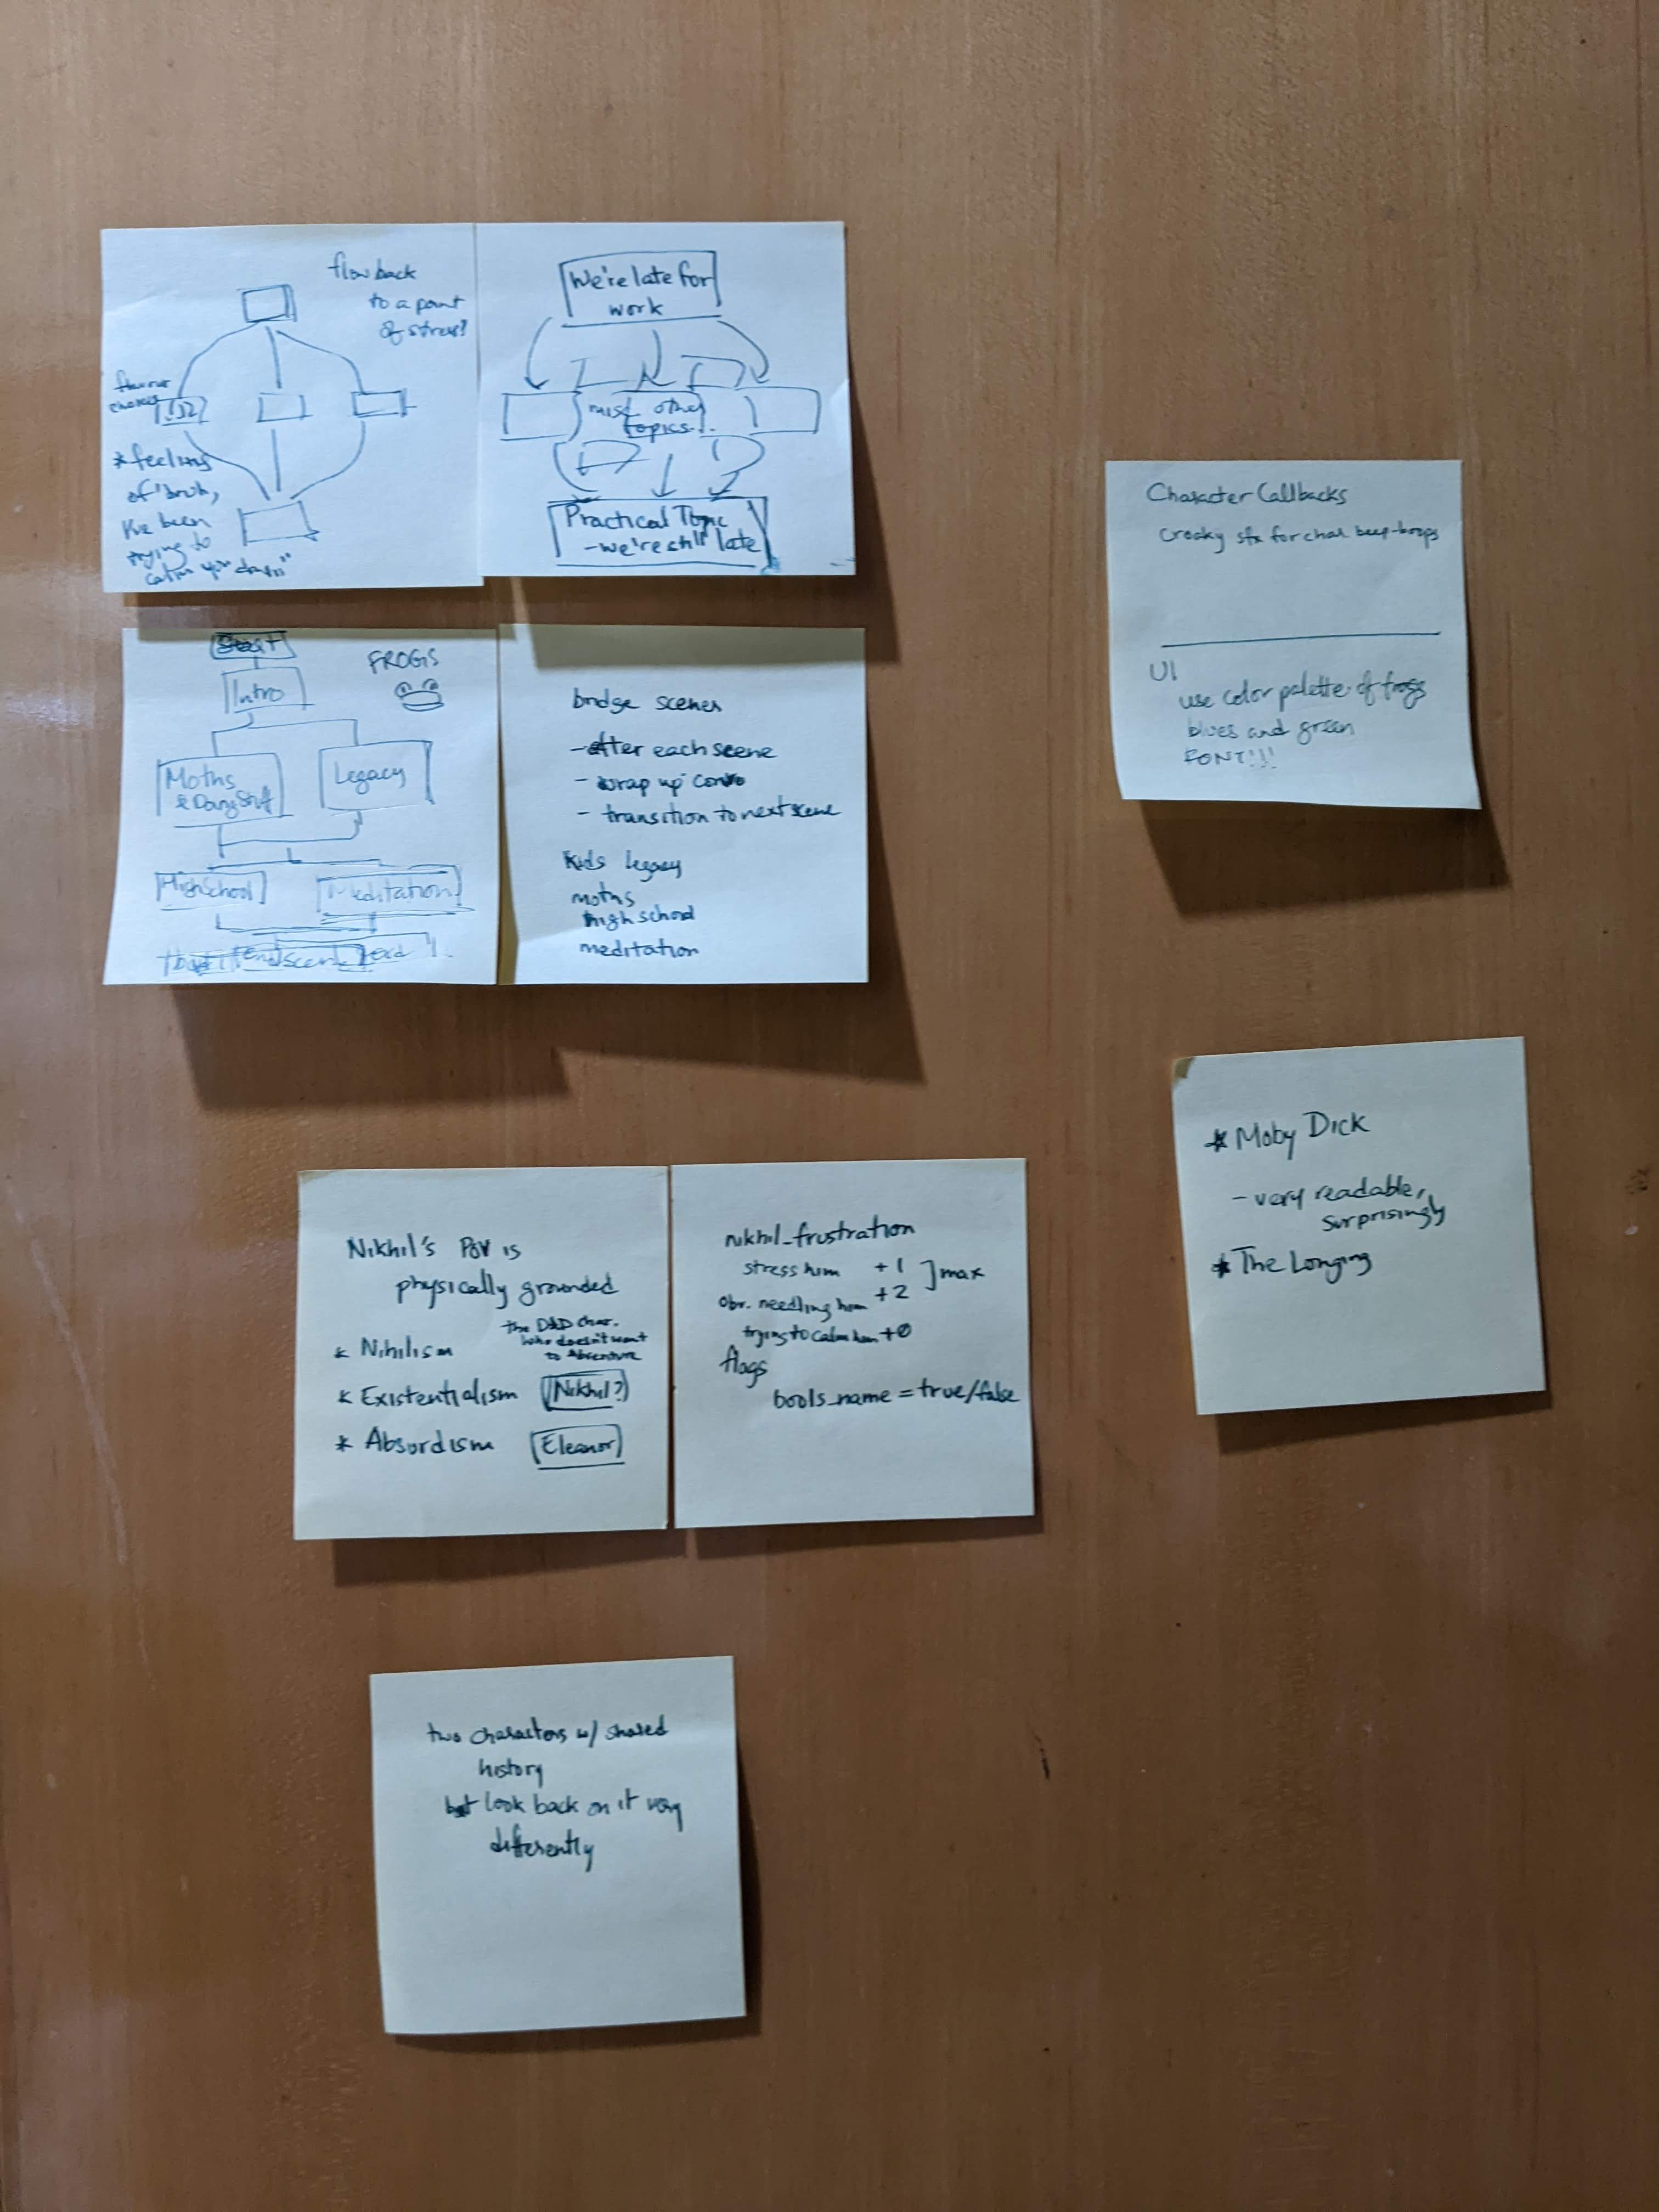 flow back
to a point
of stress?
flavour
choices
* feelings
of "bruh,
I've been
trying to
calm you down"
We're late for
work
other
topics..
Practical Topic
- we're still late
Start
FROGS
Intro
Moths
Legacy
High School
Meditation
end scene
bridge scenes
- after each scene
- wrap up convo
- transition to next scene
kids legacy
moths
high school
meditation
Character Callbacks
croaky sfx for char beep-boops
UI
use color palette of frogs
blues and green
FONT!!!
* Moby Dick
- very readable,
surprisingly
* The Longing
Nikhil's POV is
physically grounded
the D&D char.
who doesn't want
to Adventure
* Nihilism
* Existentialism Nikhil?
* Absurdism Eleanor
nikhil_frustration
stress him +1
] max
needling him +2
trying to calm him +0
flags
bools_name = true/false
two characters w/ shared
history
but look back on it very
differently